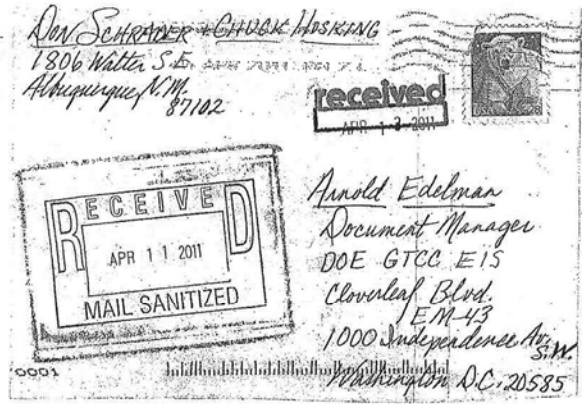 Don Schrader + Chuck Hosking
1806 Walter S.E.
Albuquerque, N.M.
87102
received
APR 13 2011
USA 28
RECEIVED
APR 11 2011
MAIL SANITIZED
Arnold Edelman
Document Manager
DOE GTCC EIS
Cloverleaf Blvd.
EM-43
1000 Independence Av.
S.W.
Washington D.C. 20585
0001